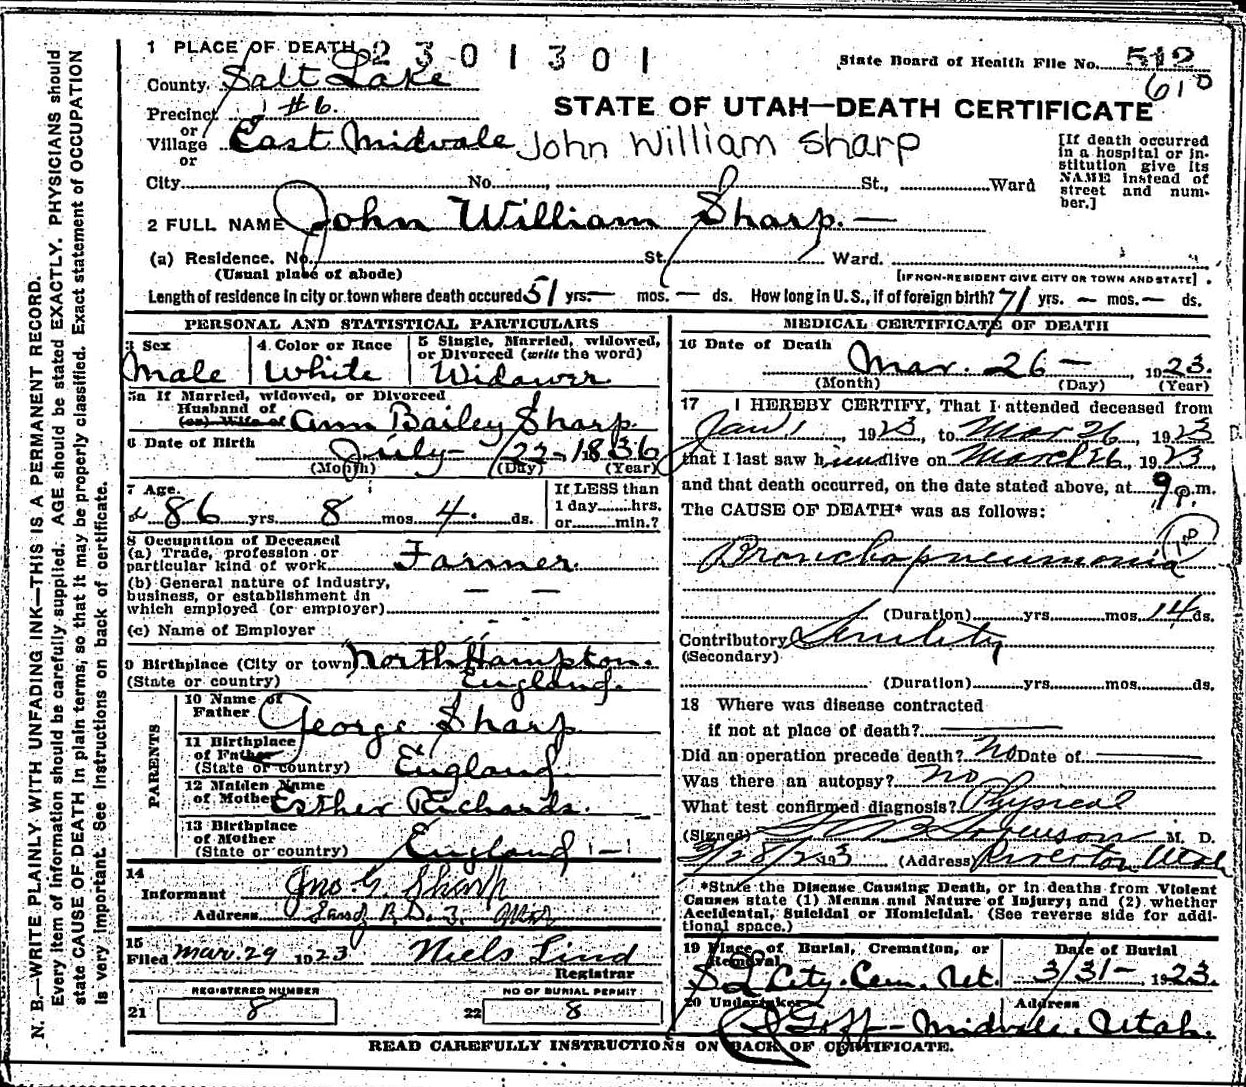 N. B.—WRITE PLAINLY WITH UNFADING INK—THIS IS A PERMANENT RECORD.
Every item of information should be carefully supplied. AGE should be stated EXACTLY. PHYSICIANS should
state CAUSE OF DEATH in plain terms, so that it may be properly classified. Exact statement of OCCUPATION
is very important. See instructions on back of certificate.
1 PLACE OF DEATH 2301301
State Board of Health File No. 512
610
County Salt Lake
Precinct #6.
or
Village East Midvale
or
STATE OF UTAH—DEATH CERTIFICATE
John William Sharp
[If death occurred in a hospital or institution give its NAME instead of street and number.]
City No. St., Ward
2 FULL NAME John William Sharp.
(a) Residence. No. St. Ward.
(Usual place of abode) [IF NON-RESIDENT GIVE CITY OR TOWN AND STATE]
Length of residence in city or town where death occured 51 yrs. — mos. — ds. How long in U.S., if of foreign birth? 71 yrs. — mos. — ds.
PERSONAL AND STATISTICAL PARTICULARS
3 Sex 4 Color or Race 5 Single, Married, widowed, or Divorced (write the word)
Male White Widower
5a If Married, widowed, or Divorced
Husband of
(or) Wife of Ann Bailey Sharp.
6 Date of Birth July — 22 — 1836
(Month) (Day) (Year)
7 Age. If LESS than
86 yrs. 8 mos. 4. ds. 1 day hrs.
or min.?
8 Occupation of Deceased
(a) Trade, profession or
particular kind of work Farmer.
(b) General nature of industry,
business, or establishment in — —
which employed (or employer)
(c) Name of Employer
9 Birthplace (City or town) North Hampton.
(State or country) England.
PARENTS
10 Name of
Father George Sharp
11 Birthplace
of Father
(State or country) England.
12 Maiden Name
of Mother Esther Richards.
13 Birthplace
of Mother
(State or country) England
14
Informant Jno. G. Sharp
Address Sandy R. D. 3.
15
Filed Mar. 29 1923 Niels Lind
Registrar
REGISTERED NUMBER NO OF BURIAL PERMIT
21 8 22 8
MEDICAL CERTIFICATE OF DEATH
16 Date of Death Mar. 26 — , 1923.
(Month) (Day) (Year)
17 I HEREBY CERTIFY, That I attended deceased from
Jan 1, 1923, to Mar 26, 1923
that I last saw him alive on March 26, 1923,
and that death occurred, on the date stated above, at 9 p.m.
The CAUSE OF DEATH* was as follows:
Bronchopneumonia
(Duration) yrs. mos. 14 ds.
Contributory Senility
(Secondary)
(Duration) yrs. mos. ds.
18 Where was disease contracted
if not at place of death?
Did an operation precede death? No Date of
Was there an autopsy? No
What test confirmed diagnosis? Physical
(Signed) M. D.
3/28/1923 (Address) Riverton Utah
*State the Disease Causing Death, or in deaths from Violent
Causes state (1) Means and Nature of Injury; and (2) whether
Accidental, Suicidal or Homicidal. (See reverse side for additional space.)
19 Place of Burial, Cremation, or Removal Date of Burial
S L City. Cem. Ut. 3/31 — 1923.
20 Undertaker Address
Goff — Midvale. Utah.
READ CAREFULLY INSTRUCTIONS ON BACK OF CERTIFICATE.